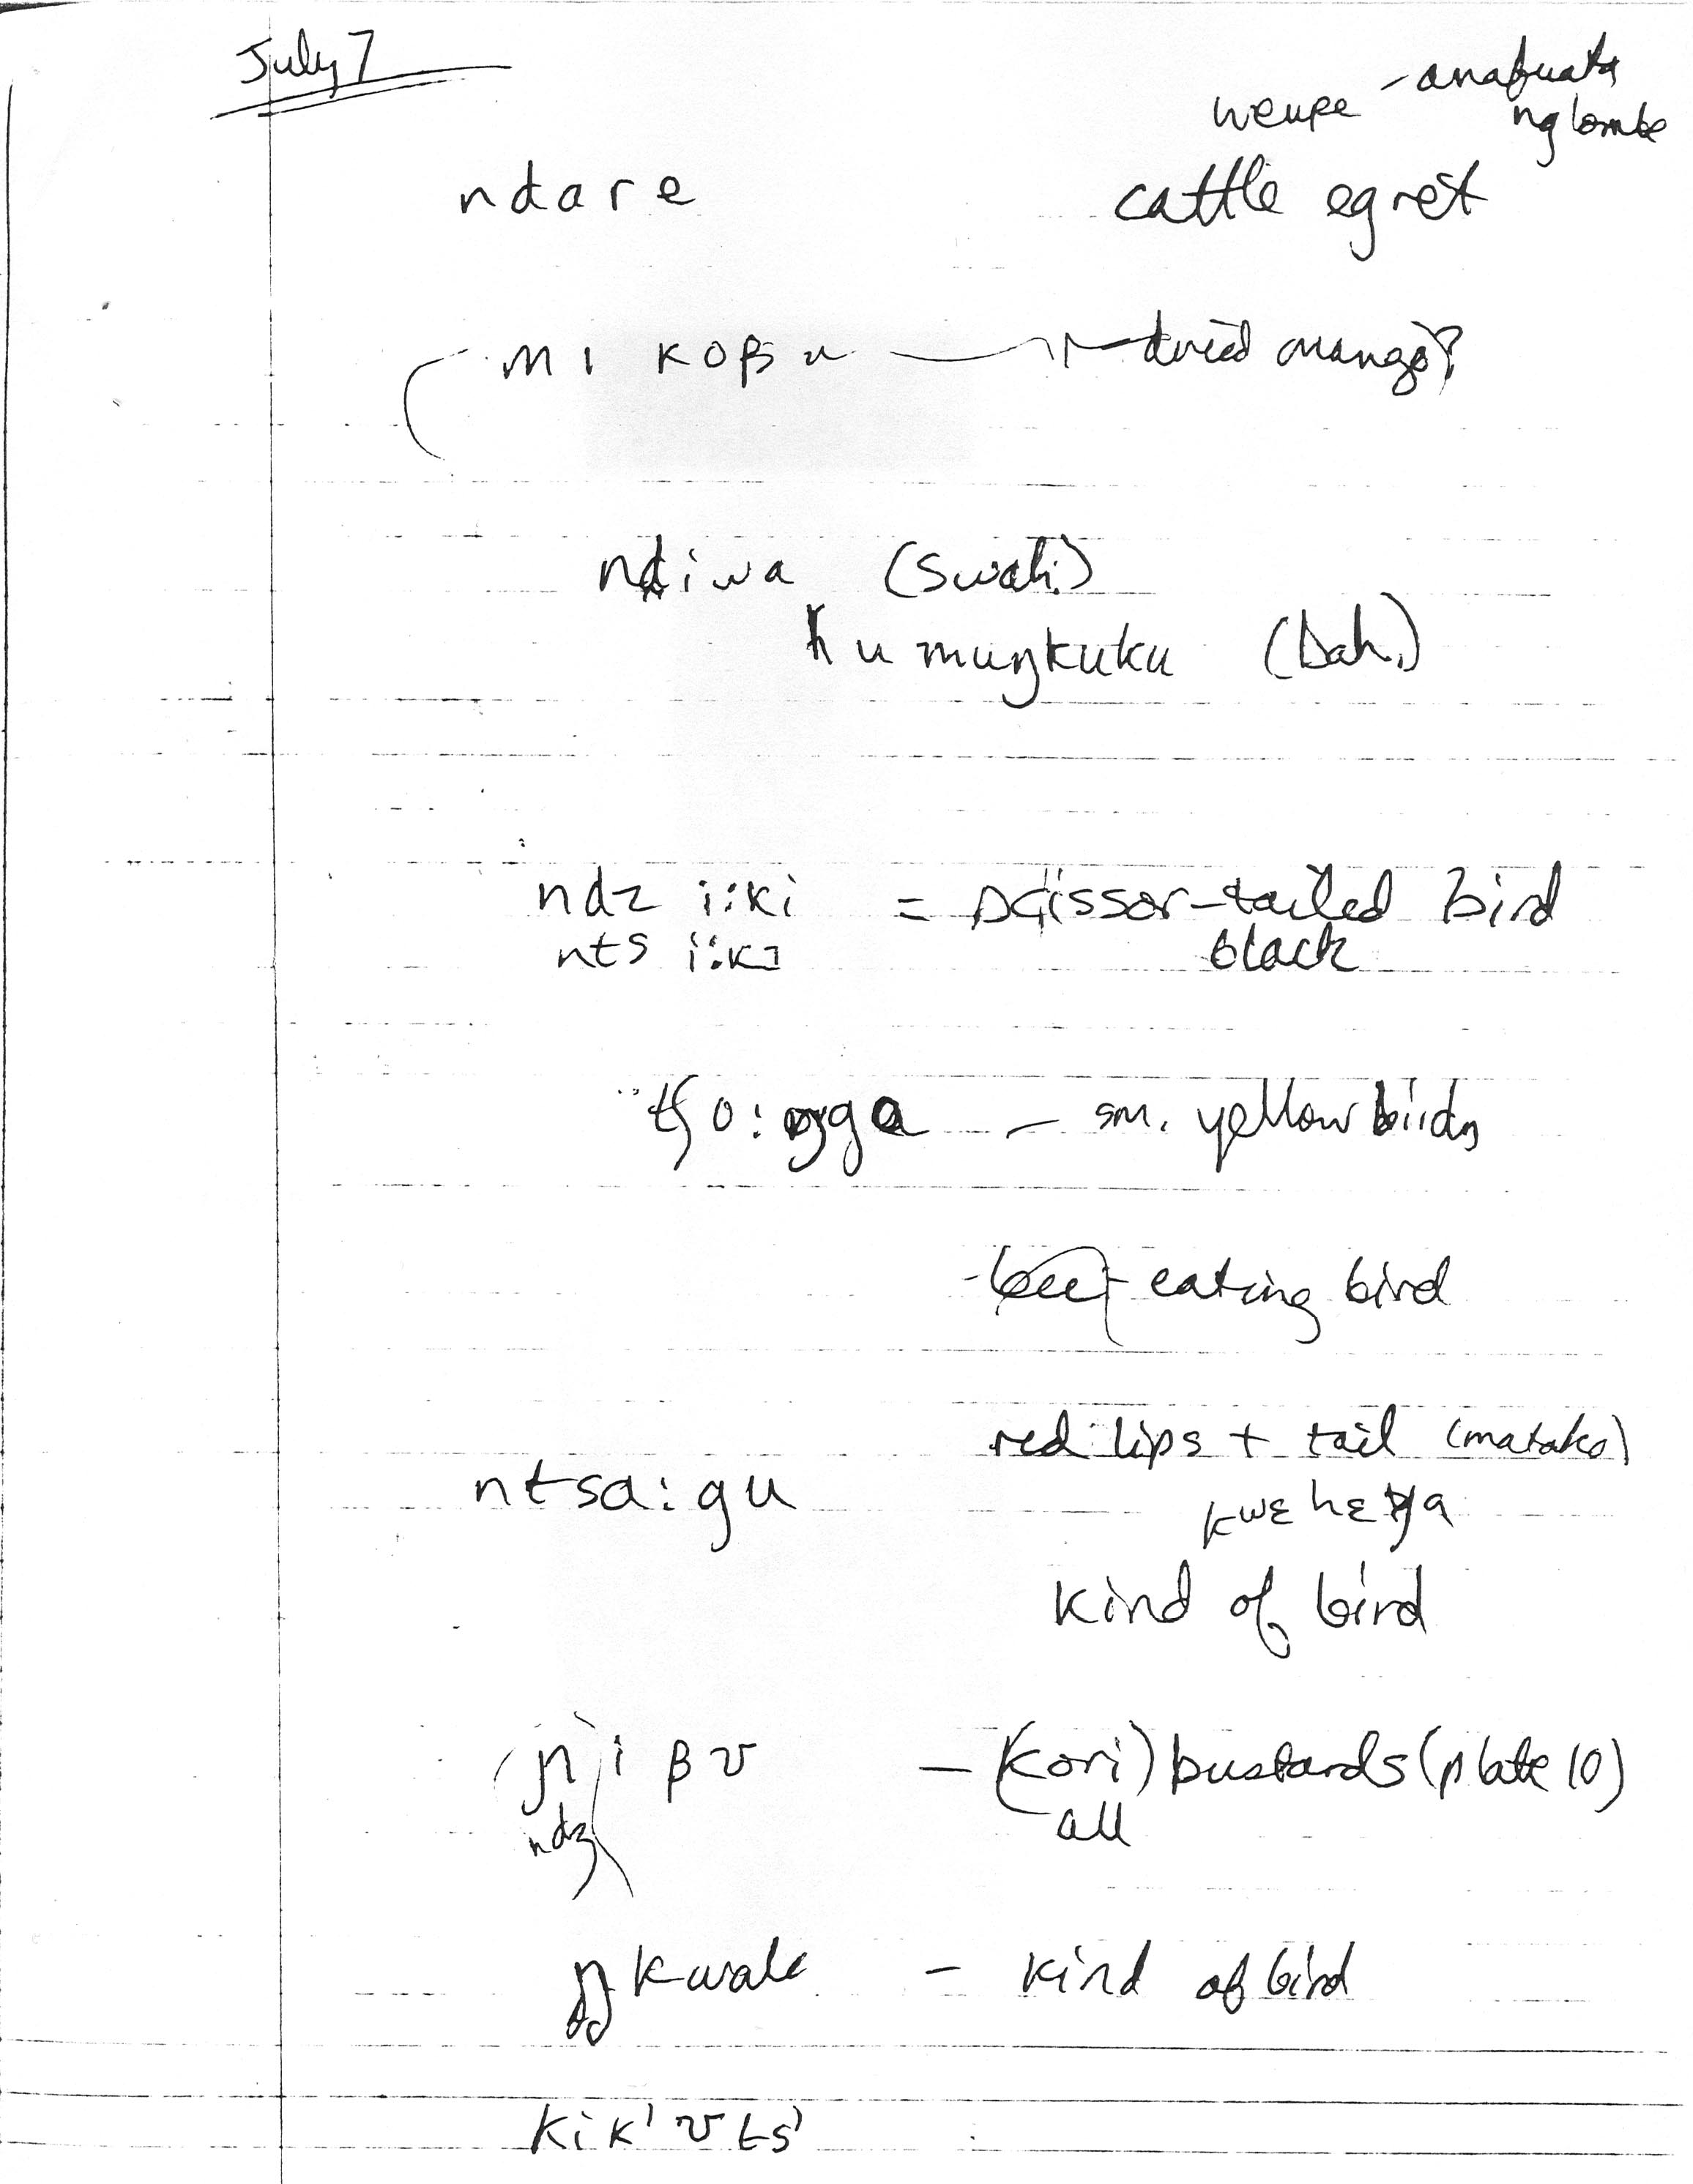 July 7
weupe - anafuata
ng'ombe
ndare cattle egret
mikoβu — dried mango?
ndiwa (Swah.)
ɦumuŋkuku (Dah.)
ndz i:ki = scissor-tailed bird
nts i:ki black
tʃo:ŋga - sm. yellow birds
- bee-eating bird
red lips + tail (matako)
ntsa:gu
kind of bird
(ɲ) i βʊ - (kori) bustards (plate 10)
ndz all
ŋkwale - kind of bird
kik'ʊts'